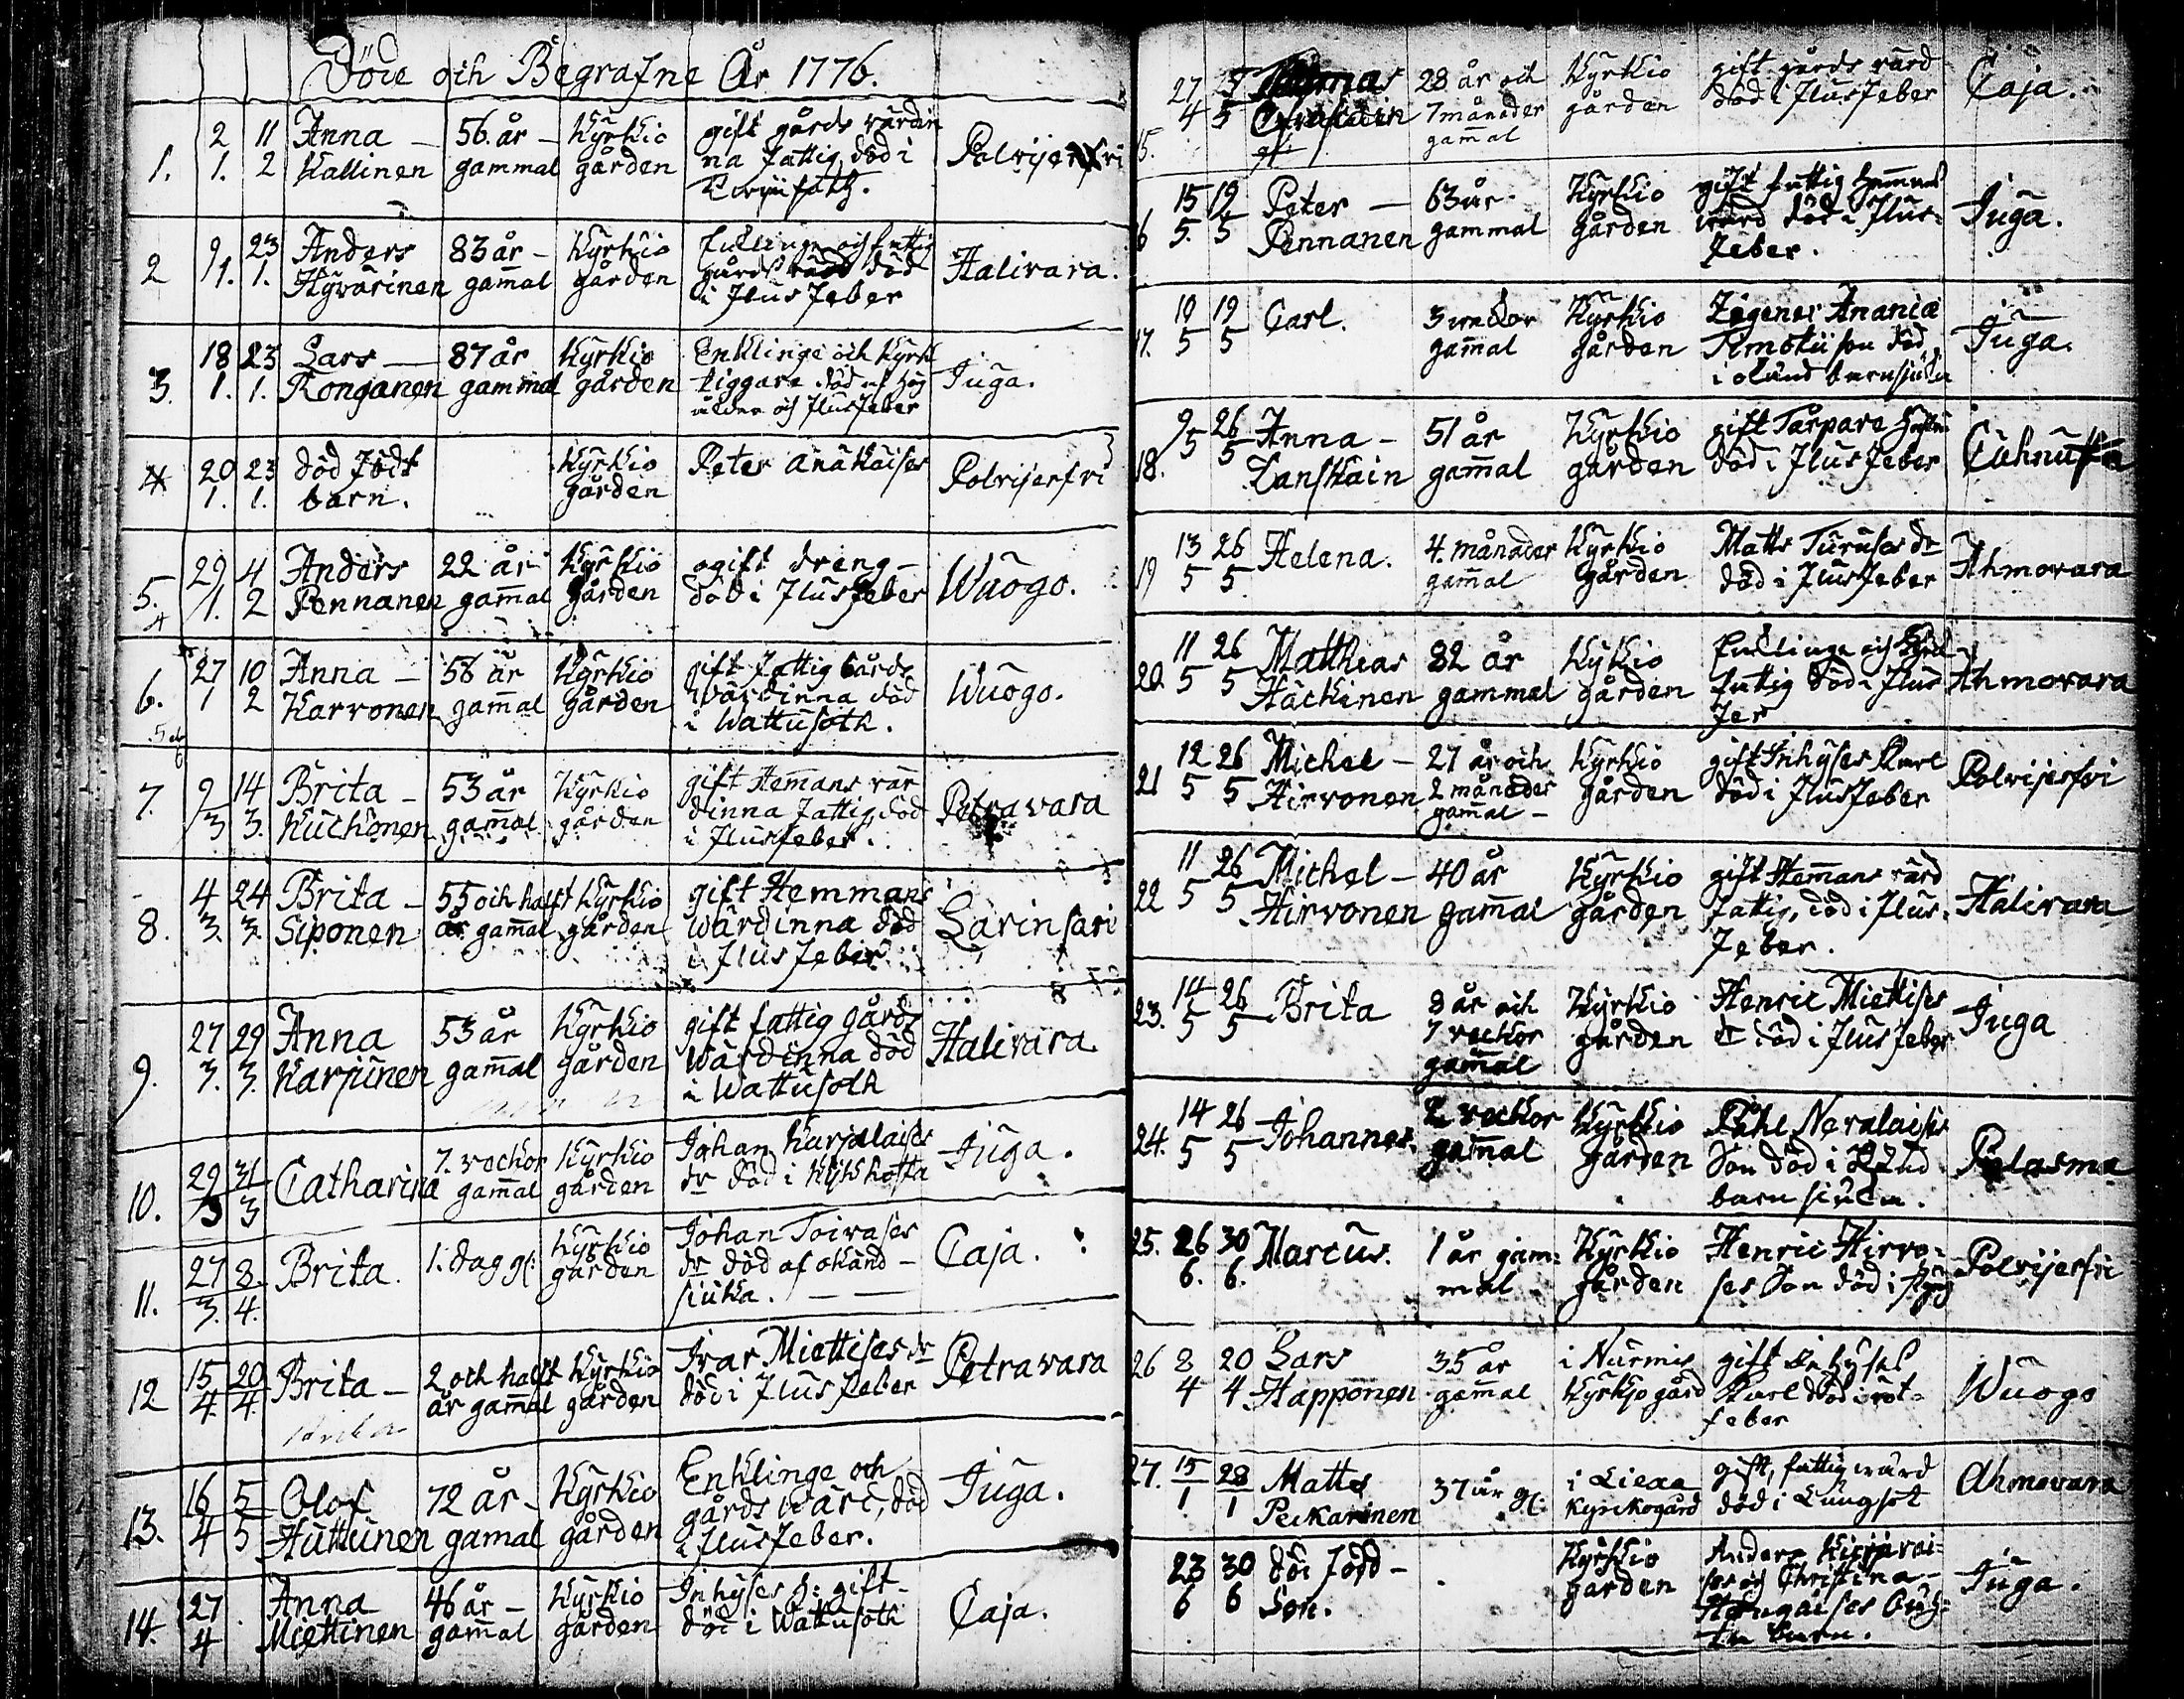 Döde och Begrafne År 1776.
1. 2/1. 11/2 Anna Kallinen 56. år gammal Kyrkio gården gift gårds värdin
na fattig, död i Polvijerfvi
2 9/1. 23/1. Anders Hyvärinen 83 år gam̄al Kyrkio gården Enklinge och fattig
gårds värd död
i flusfeber Halivara.
3. 18/1. 23/1. Lars Ronganen 87 år gammal Kyrkio gården Enklinge och Kyrk
tiggare död af hög
ålder och flusfeber Juga.
4 20/1. 23/1. död födt
barn. Kyrkio
gården Peter Polvijerfvi
5. 4 29/1. 4/2 Anders Pennanen 22 år gam̄al Kyrkio gården ogift dreng
död i flusfeber Wuogo.
6. 5 27/1 10/2 Anna Karvonen 58 år gam̄al Kyrkio gården gift fattig Gårds
Wärdinna död
i Wattusoth. Wuogo.
7. 9/3 14/3. Brita Kuckonen 53 år gam̄al Kyrkio gården gift Hem̄ans vär
dinna fattig, död
i flusfeber. Petravara
8. 4/3. 24/3. Brita Siponen 55 och halft
år gam̄al Kyrkio gården gift Hemmans
Wärdinna död
i flusfeber Larinsari
9. 27/3. 29/3. Anna Karjunen 53 år gam̄al Kyrkio gården gift fattig gårds
Wärdinna död
i Wattusoth Halivara
10. 29/3 31/3 Catharina 7. veckor
gam̄al Kyrkio gården Johan Karjalaises
dr död i Kikhosta Juga.
11. 27/3. 8/4. Brita. 1. dag gl: Kyrkio
gården Johan Toivases
dr död af okänd
siuka. Caja.
12 15/4. 20/4. Brita 2 och halft
år gam̄al Kyrkio gården Ivar Miettises dr
död i flusfeber Petravara
13. 16/4 5/5 Olof Huttunen 72 år gamal Kyrkio gården Enklinge och
gårds Wärd, död
i flusfeber. Juga.
14. 27/4 Anna Miettinen 46 år gam̄al Kyrkio gården Inhyses h: gift
död i Wattusoth Caja.
15. 27/4 5/5 Thomas 28 år och
7 månader
gam̄al Kyrkio gården gift gårds värd
död i flusfeber Caja.
6 15/5. 19/5 Peter Pennanen 63 år gammal Kyrkio gården gift fattig
värd död i flus-
feber. Juga.
17. 10/5 19/5 Carl. 3 veckor
gam̄al Kyrkio gården Ananiæ
son död
i okänd barnsjuka Juga.
18. 9/5 26/5 Anna 51 år
gam̄al Kyrkio gården gift Torpare
död i flusfeber
19 13/5 26/5 Helena. 4. månader
gam̄al Kyrkio gården Matts Turuses dr
död i flusfeber Ahmovara
20. 11/5 26/5 Matthias Häckinen 82 år gammal Kyrkio gården Enklinge och
fattig död i flus
fer Ahmovara
21 12/5 26/5 Michel Hirvonen 27 år och
2 månader
gam̄al Kyrkio gården gift Inhyses Karl
död i flusfeber Polvijerfvi
22 11/5 26/5 Michel Hirvonen 40 år gam̄al Kyrkio gården gift Hem̄ans värd
fattig, död i flus-
feber. Halivara
23. 14/5 26/5 Brita 8 år och
7 veckor
gam̄al Kyrkio gården Henric Miettises
dr död i flusfeber Juga
24. 14/5 26/5 Johannes. 2 veckor
gam̄al Kyrkio gården Påhl Nevalaises
Son död i okänd
barnsiuka. Polasma
25. 26/6. 30/6. Marcus. 1 år gam-
mal Kyrkio gården Henric Hirvo-
ses Son död i Polvijerfvi
26 8/4 20/4 Lars Happonen 35 år gam̄al i Nurmis
Kyrkjo gård gift Inhyses
Karl död i röt-
feber Wuogo
27. 15/1 28/1 Matts Peckarinen 37 år gl: i Liexa
Kyrckogård gift, fattig värd
död i Lungsot Ahmovara
23/6 30/6 död född
Son. Kyrkio
gården Anders
och Christina
barn. Juga.